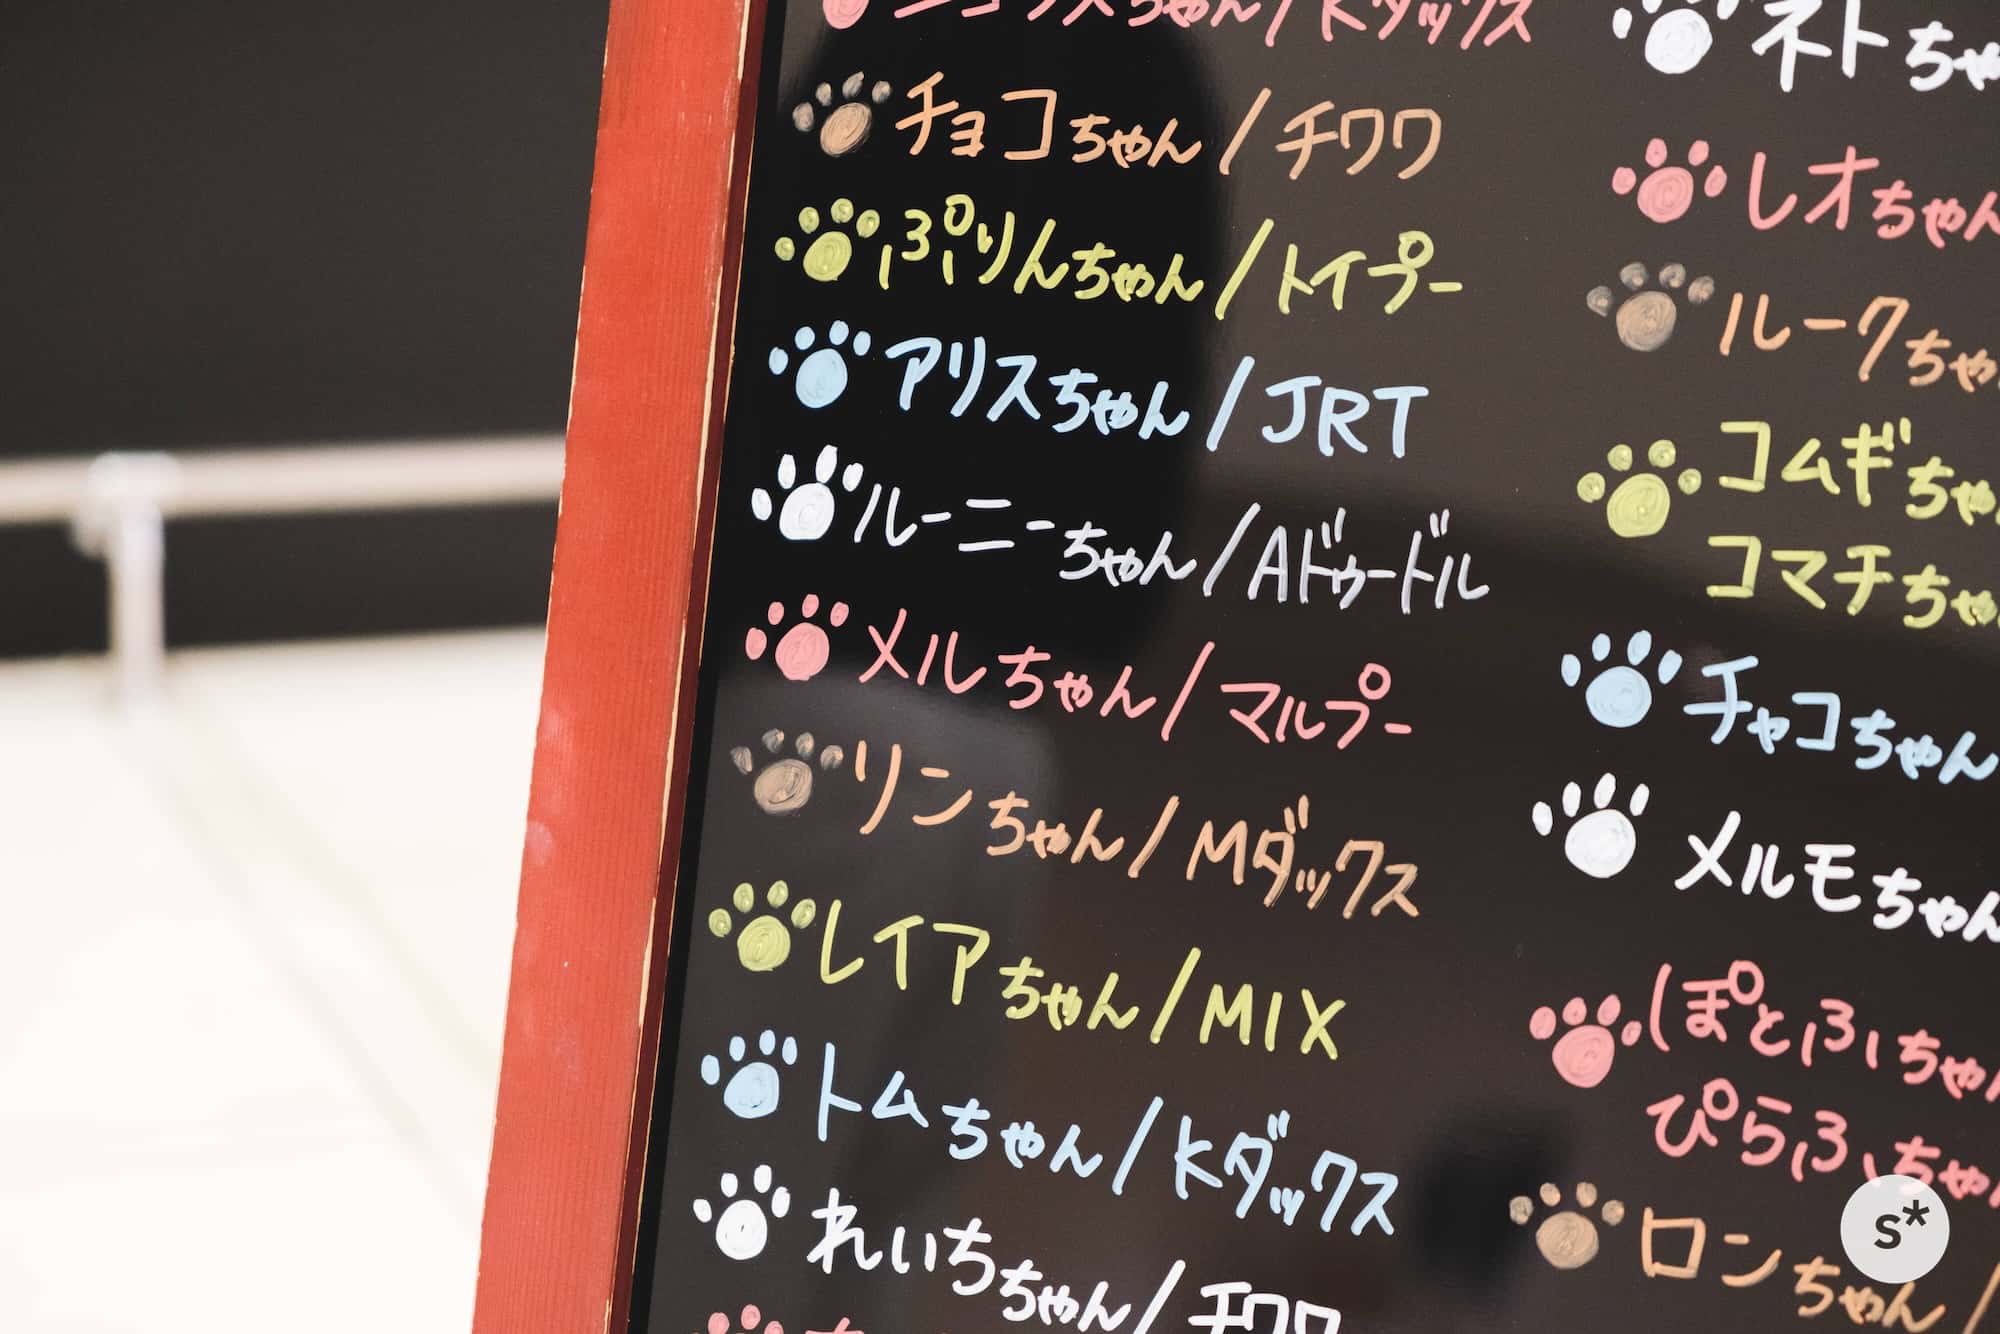 ちゃん/Kダックス
チョコちゃん/チワワ
ぷりんちゃん/トイプー
アリスちゃん/JRT
ルーニーちゃん/Aドゥードル
メルちゃん/マルプー
リンちゃん/Mダックス
レイアちゃん/MIX
トムちゃん/Kダックス
れいちちゃん/チワワ
ネトちゃ
レオちゃん
ルークちゃ
コムギちゃ
コマチちゃ
チャコちゃん
メルモちゃん
ぽとふちゃん
ぴらふちゃ
ロンちゃん/
s*